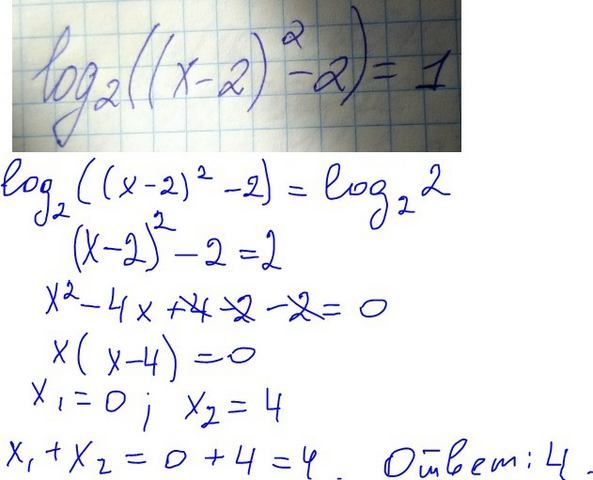 log₂((x-2)²-2)=1
log₂((x-2)²-2)=log₂2
(x-2)²-2=2
x²-4x+4-2-2=0
x(x-4)=0
x₁=0; x₂=4
x₁+x₂=0+4=4. Ответ: 4.